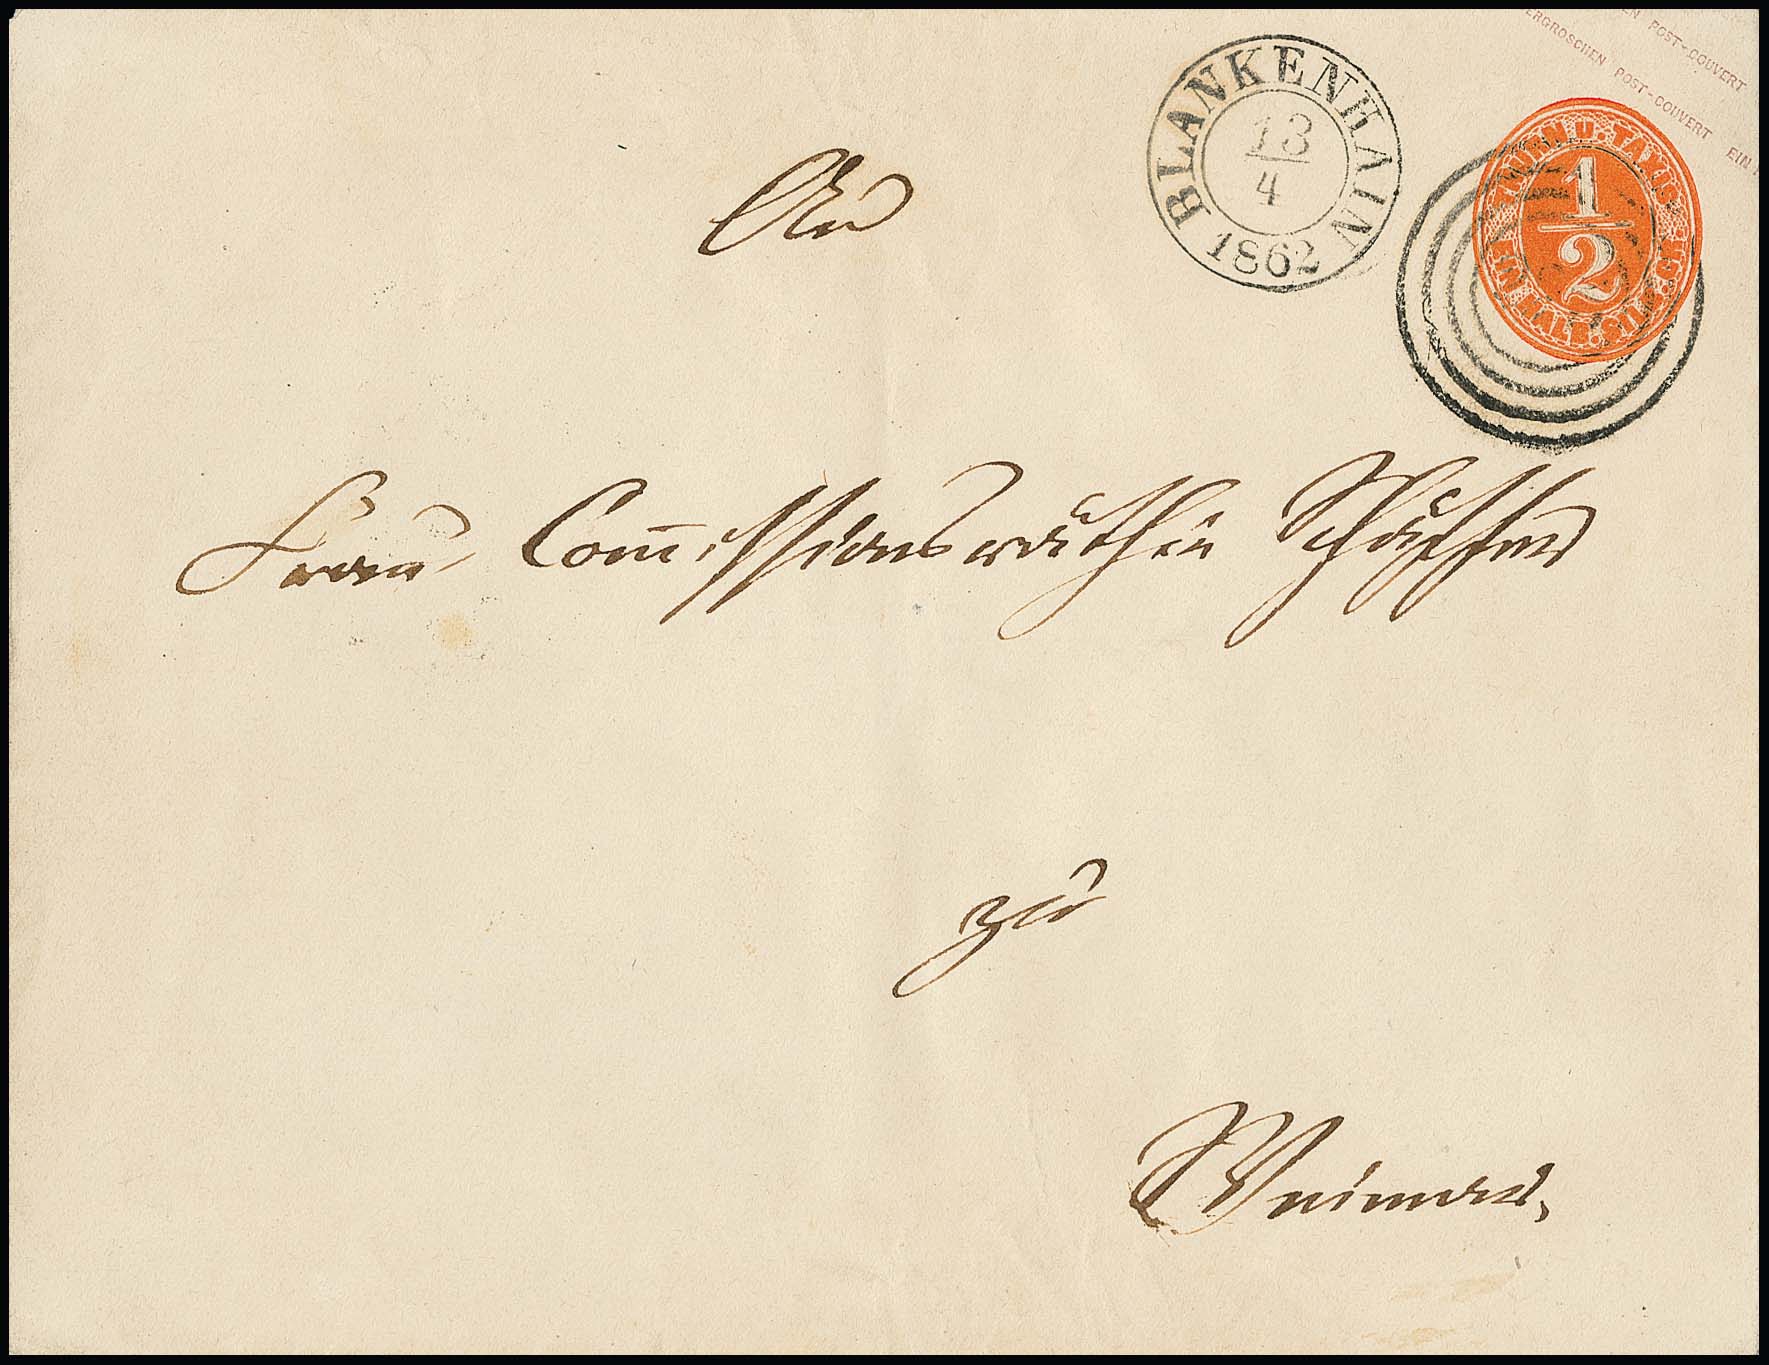 ERGROSCHEN POST-COUVERT EIN
EN POST-COUVERT
BLANKENHAIN
13/4
1862
THURN U. TAXIS
1/2
EIN HALB. SILB. GR.
An
Frau Commissionsräthin Schäffer
zu
Weimar,